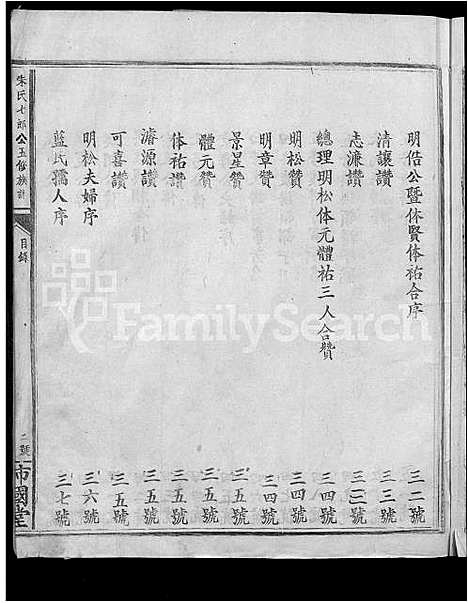 明俈公暨体賢体祐合序 三二號
清讓讚 三三號
志濂讚 三三號
總理明松体元體祐三人合贊 三四號
明松贊 三四號
明章贊 三四號
景星贊 三五號
體元贊 三五號
体祐讚 三五號
濬源讚 三五號
可喜讚 三五號
明松夫婦序 三六號
藍氏孺人序 三七號
朱氏七郎公五修族譜
目錄
二號
沛國堂
FamilySearch